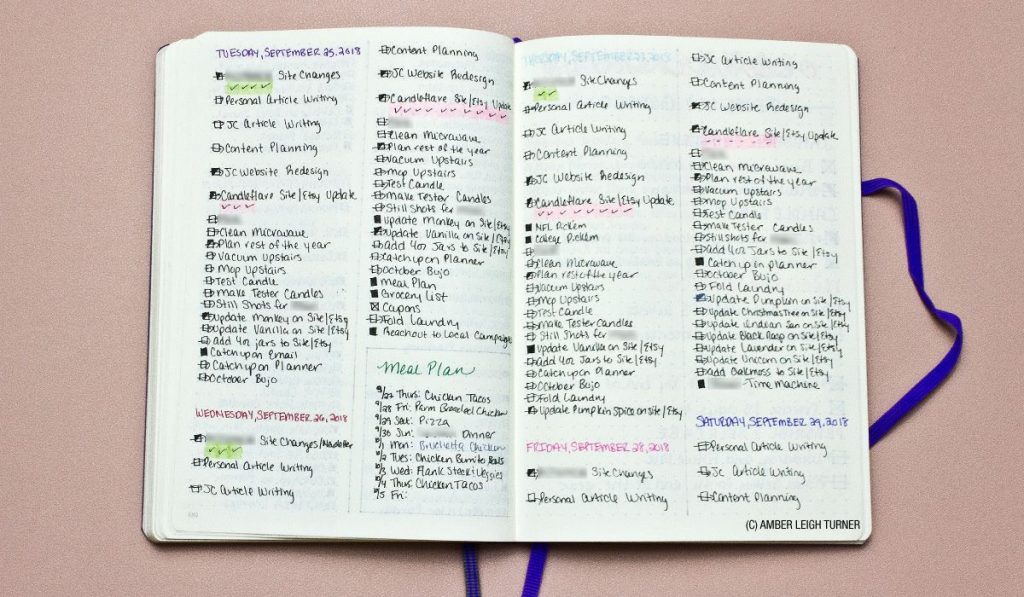 TUESDAY, SEPTEMBER 25, 2018
Site Changes
Personal Article Writing
JC Article Writing
Content Planning
JC Website Redesign
Candleflare Site/Etsy Update
Clean Microwave
Plan rest of the year
Vacuum Upstairs
Mop Upstairs
Test Candle
Make Tester Candles
Still Shots for
Update Monkey on Site/Etsy
Update Vanilla on Site/Etsy
add 4oz jars to Site/Etsy
Catch up on email
Catch up on Planner
October Bujo
WEDNESDAY, SEPTEMBER 26, 2018
Site Changes/Newsletter
Personal Article Writing
JC Article Writing
Content Planning
JC Website Redesign
Candleflare Site/Etsy Update
Clean Microwave
Plan rest of the year
Vacuum Upstairs
Mop Upstairs
Test Candle
Make Tester Candles
Still Shots for
Update Monkey on Site/Etsy
Update Vanilla on Site/Etsy
add 4oz Jars to Site/Etsy
Catch up on Planner
October Bujo
Meal Plan
Grocery List
Cupons
Fold Laundry
Reachout to Local Campaign
Meal Plan
9/27 Thurs: Chicken Tacos
9/28 Fri: Parm Breaded Chicken
9/29 Sat: Pizza
9/30 Sun: Dinner
10/1 Mon: Bruchetta Chicken
10/2 Tues: Chicken Burrito Bowls
10/3 Wed: Flank Steak & Veggies
10/4 Thus: Chicken Tacos
10/5 Fri:
THURSDAY, SEPTEMBER 27, 2018
Site Changes
Personal Article Writing
JC Article Writing
Content Planning
JC Website Redesign
Candleflare Site/Etsy Update
NFL Pickem
College Pickem
Clean Microwave
Plan rest of the year
Vacuum Upstairs
Mop Upstairs
Test Candle
Make Tester Candles
Still Shots for
Update Vanilla on Site/Etsy
add 4oz Jars to Site/Etsy
Catch up on Planner
October Bujo
Fold Laundry
Update Pumpkin Spice on Site/Etsy
FRIDAY, SEPTEMBER 28, 2018
Site Changes
Personal Article Writing
JC Article Writing
Content Planning
JC Website Redesign
Candleflare Site/Etsy Update
Clean Microwave
Plan rest of the year
Vacuum Upstairs
Mop Upstairs
Test Candle
Make Tester Candles
Still Shots for
add 4oz Jars to Site/Etsy
Catch up in planner
October Bujo
Fold Laundry
Update Pumpkin on Site/Etsy
Update Christmas Tree on Site/Etsy
Update on Site/Etsy
Update Black Rasp on Site/Etsy
Update Lavender on Site/Etsy
Update Unicorn on Site/Etsy
Add Oakmoss to Site/Etsy
-Time Machine
SATURDAY, SEPTEMBER 29, 2018
Personal Article Writing
JC Article Writing
Content Planning
(C) AMBER LEIGH TURNER